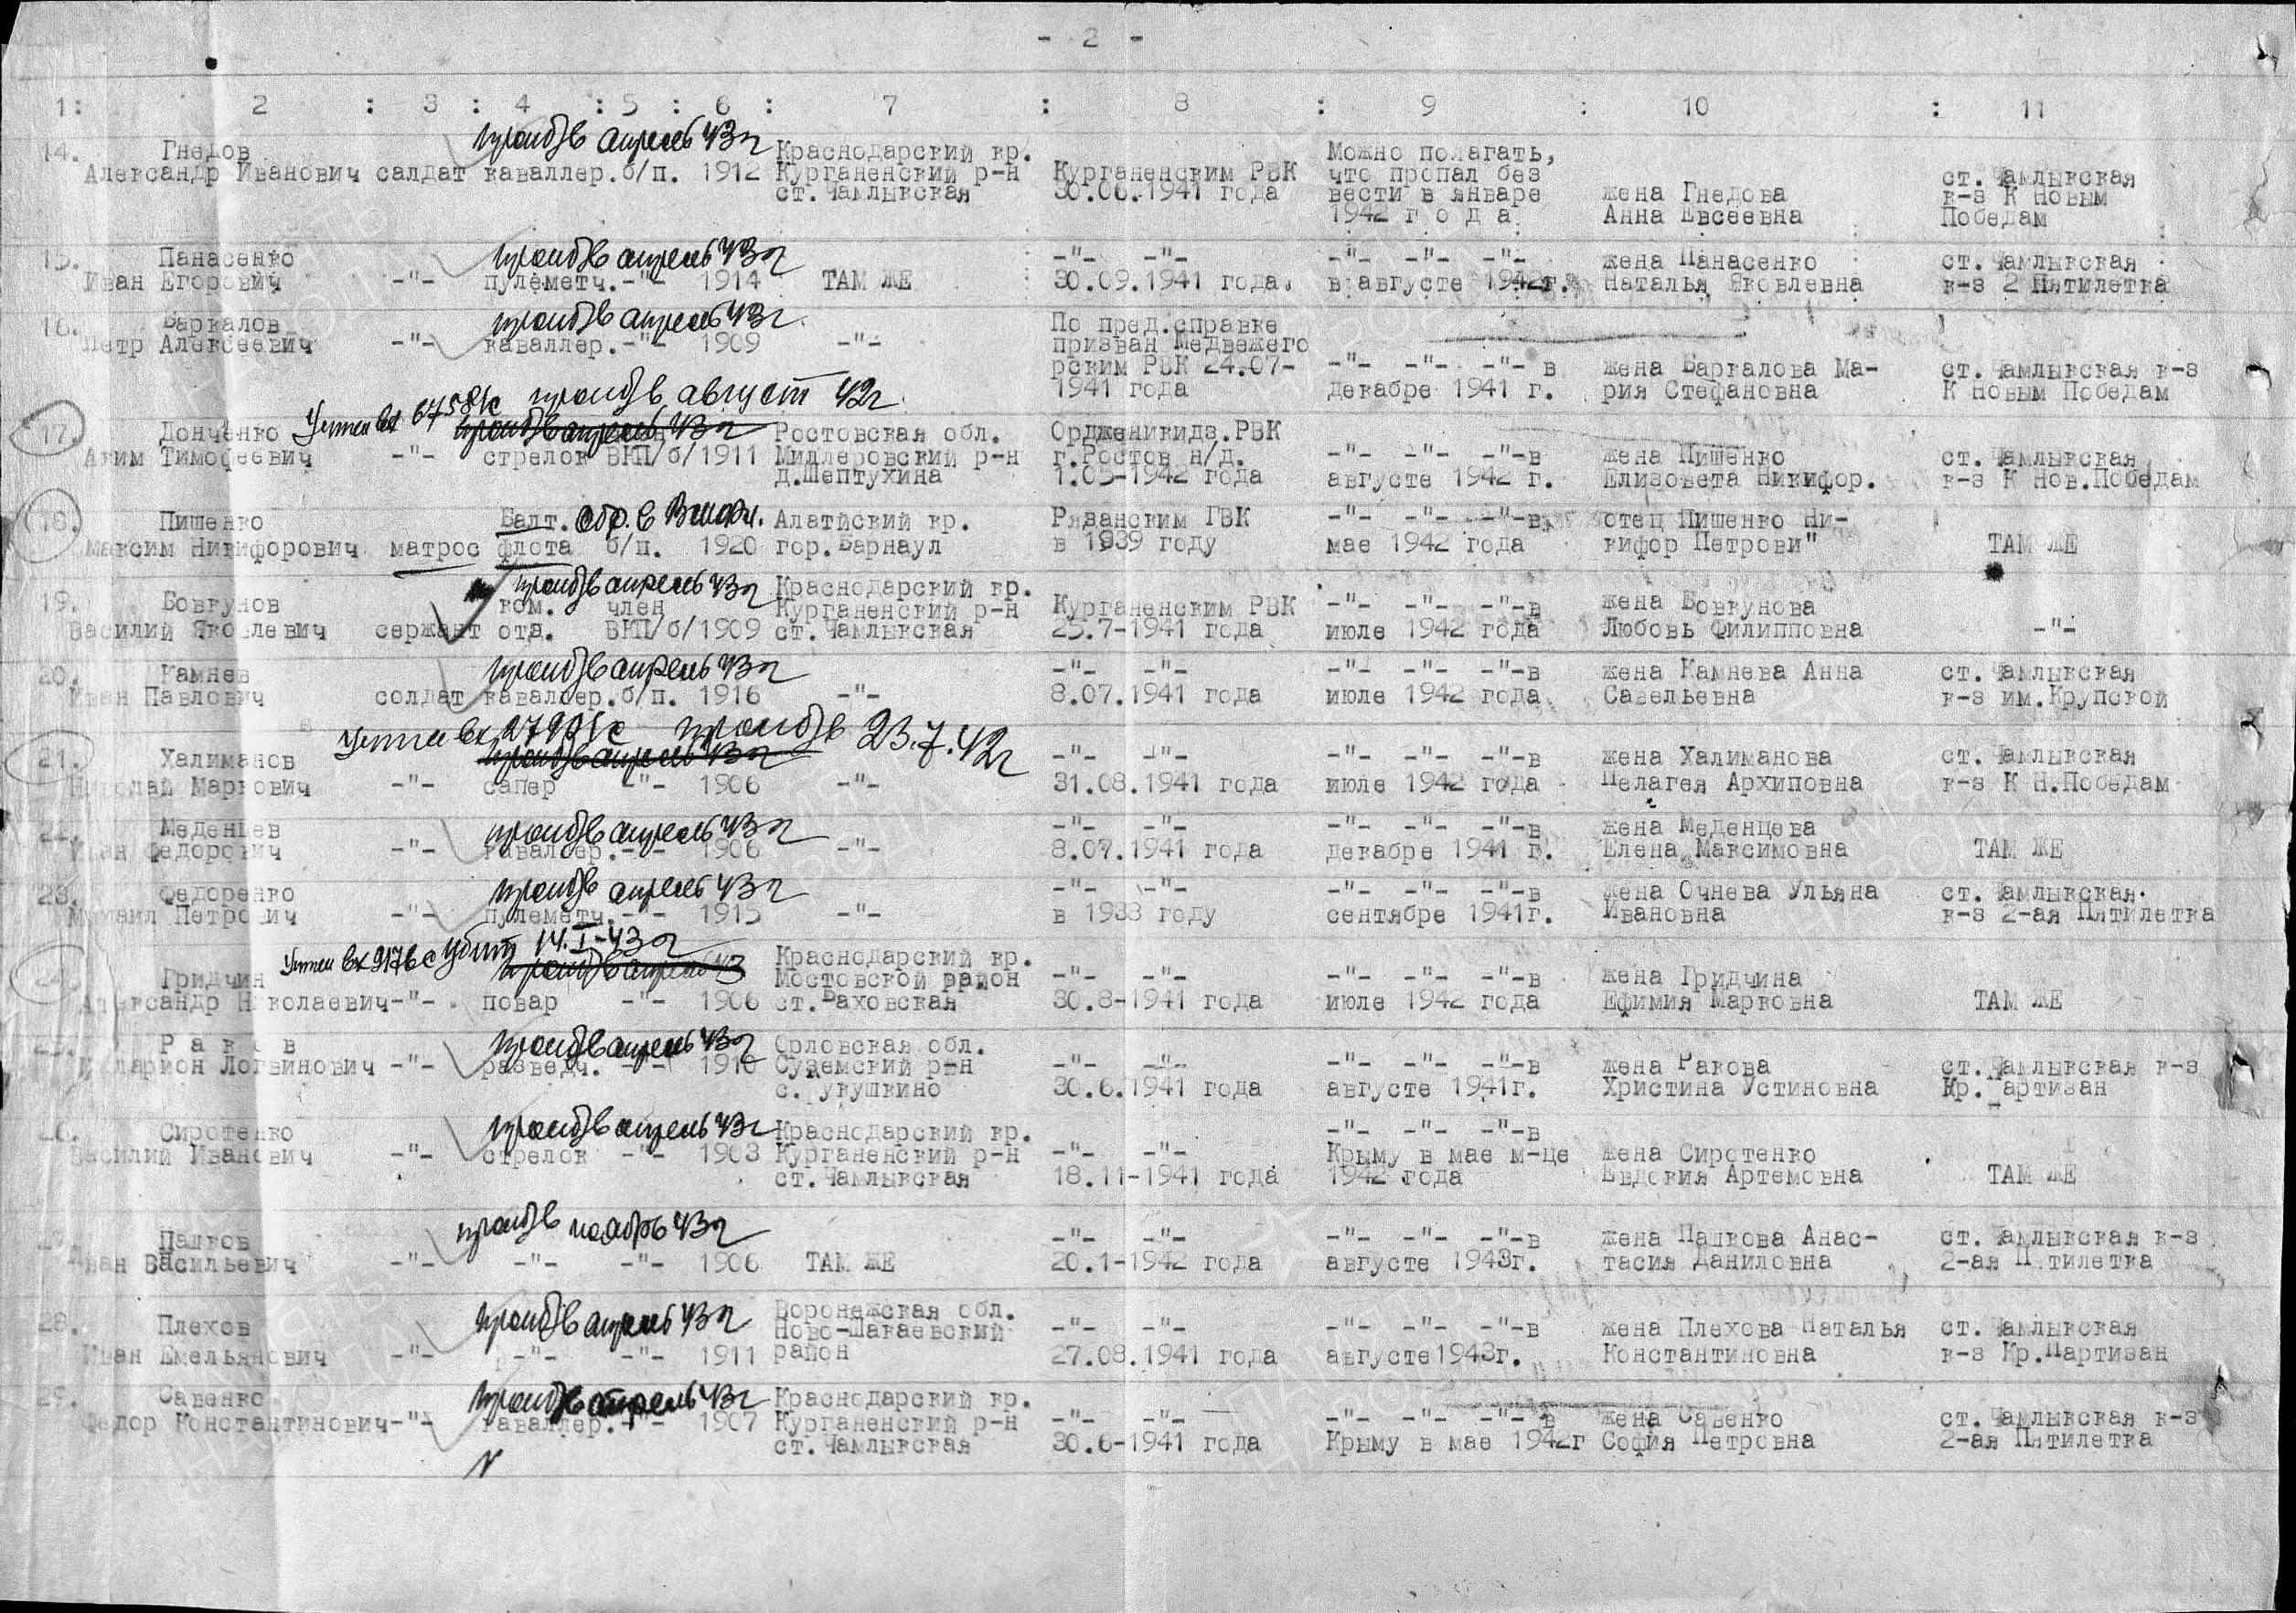 - 2 -
1: 2 : 3 : 4 : 5 : 6 : 7 : 8 : 9 : 10 : 11
пропб/в апрель 43г
14. Гнедов Краснодарский кр. Можно полагать,
Александр Иванович солдат каваллер. б/п. 1912 Курганенский р-н Курганенским РВК что пропал без ст.Чамлыкская
ст.Чамлыкская 30.06.1941 года вести в январе жена Гнедова к-з К Новым
1942 г о д а Анна Евсеевна Победам
пропб/в апрель 43г
15. Панасенко -"- -"- -"- -"- -"- жена Панасенко ст.Чамлыкская
Иван Егорович -"- пулеметч. -"- 1914 ТАМ ЖЕ 30.09.1941 года. в августе 1942г. Наталья Яковлевна к-з 2 Пятилетка
пропб/в апрель 43г.
16. Баркалов По пред.справке
Петр Алексеевич -"- каваллер. -"- 1909 -"- призван Медвежего
рским РВК 24.07- -"- -"- -"- в жена Баркалова Ма- ст.Чамлыкская к-з
1941 года декабре 1941 г. рия Стефановна К Новым Победам
Учтен вх 67581с пропб/в август 42г.
пропб/в апрель 43г
17. Донченко Ростовская обл. Ордженикидз.РВК
Аким Тимофеевич -"- стрелок ВКП/б/ 1911 Миллеровский р-н г.Ростов н/д. -"- -"- -"-в жена Пишенко ст.Чамлыкская
д.Шептухина 1.05-1942 года августе 1942 г. Елизовета Никифор. к-з К Нов.Победам
18. Пишенко Балт. обр. в Вморн. Алатйский кр. Рязанским ГВК -"- -"- -"-в отец Пишенко Ни-
Максим Никифорович матрос флота б/п. 1920 гор.Барнаул в 1939 году мае 1942 года кифор Петрови" ТАМ ЖЕ
пропб/в апрель 43г
Краснодарский кр.
19. Бовкунов ком. член Курганенский р-н Курганенским РВК -"- -"- -"-в жена Бовкунова
Василий Яковлевич сержант отд. ВКП/б/ 1909 ст.Чамлыкская 23.7-1941 года июле 1942 года Любовь Филипповна -"-
пропб/в апрель 43г
20. Камнев -"- -"- -"- -"- -"-в жена Камнева Анна ст.Чамлыкская
Иван Павлович солдат каваллер. б/п. 1916 -"- 8.07.1941 года июле 1942 года Савельевна к-з им.Крупской
Учтен вх 27901с пропб/в 23.7.42г
пропб/в апрель 43г
21. Халиманов -"- -"- -"- -"- -"-в жена Халиманова ст.Чамлыкская
Николай Маркович -"- сапер -"- 1906 -"- 31.08.1941 года июле 1942 года Пелагея Архиповна к-з К Н.Победам
пропб/в апрель 43г
22. Меденцев -"- -"- -"- -"- -"-в жена Меденцева
Иван Федорович -"- каваллер. -"- 1906 -"- 8.07.1941 года декабре 1941 г. Елена Максимовна ТАМ ЖЕ
пропб/в апрель 43г
23. Федоренко -"- -"- -"- -"- -"-в жена Очнева Ульяна ст.Чамлыкская
Михаил Петрович -"- пулеметч. -"- 1915 -"- в 1933 году сентябре 1941г. Ивановна к-з 2-ая Пятилетка
Учтен вх 9176с убит 14.I-43г
пропб/в апрель 43
Краснодарский кр.
24. Гридчин Мостовской район -"- -"- -"- -"- -"-в жена Гридчина
Александр Николаевич -"- повар -"- 1906 ст.Баховская 30.8-1941 года июле 1942 года Ефимия Марковна ТАМ ЖЕ
пропб/в апрель 43г
25. Р а к о в Орловская обл.
Илларион Логвинович -"- разведч. -"- 1910 Суземский р-н -"- -"- -"- -"- -"-в жена Ракова ст.Чамлыкская к-з
с. укушкино 30.6.1941 года августе 1941г. Христина Устиновна Кр. Партизан
пропб/в апрель 43г
26. Сиротенко Краснодарский кр. -"- -"- -"-в
Василий Иванович -"- стрелок -"- 1903 Курганенский р-н -"- -"- Крыму в мае м-це жена Сиротенко
ст.Чамлыкская 18.11-1941 года 1942 года Евдокия Артемовна ТАМ ЖЕ
пропб/в ноябрь 43г
27. Пашков -"- -"- -"- -"- -"-в жена Пашкова Анас- ст.Чамлыкская к-з
Иван Васильевич -"- -"- -"- 1906 ТАМ ЖЕ 20.1-1942 года августе 1943г. тасия Даниловна 2-ая Пятилетка
пропб/в апрель 43г
28. Плехов Воронежская обл.
Ново-Шакаевский -"- -"- -"- -"- -"-в жена Плехова Наталья ст.Чамлыкская
Иван Емельянович -"- -"- -"- 1911 район 27.08.1941 года августе 1943г. Константиновна к-з Кр.Партизан
пропб/в апрель 43г
29. Савенко Краснодарский кр.
Федор Константинович -"- каваллер. -"- 1907 Курганенский р-н -"- -"- -"- -"- -"- в жена Савенко ст.Чамлыкская к-з
ст.Чамлыкская 30.6-1941 года Крыму в мае 1942г София Петровна 2-ая Пятилетка